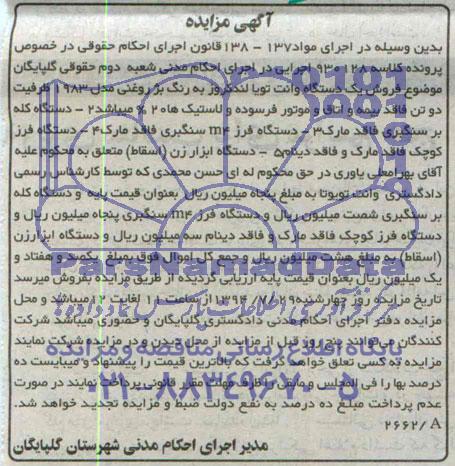 آگهی مزایده
بدین وسیله در اجرای مواد ۱۳۷ - ۱۳۸ قانون اجرای احکام حقوقی در خصوص
پرونده کلاسه ۹۳۰۱۲۸ اجرایی در اجرای احکام مدنی شعبه دوم حقوقی گلپایگان
موضوع فروش یک دستگاه وانت تویا لندکروز به رنگ بژ روغنی مدل ۱۹۸۳ ظرفیت
دو تن فاقد بیمه و اتاق و موتور فرسوده و لاستیک ها ۲۰٪ میباشد ۲- دستگاه کله
بر سنگبری فاقد مارک ۳- دستگاه فرز m۴ سنگبری فاقد مارک ۴- دستگاه فرز
کوچک فاقد مارک و فاقد دینام ۵- دستگاه ابزار زن (اسقاط) متعلق به محکوم علیه
آقای بهرامعلی یاوری در حق محکوم له ای حسن محمدی که توسط کارشناس رسمی
دادگستری وانت تویوتا به مبلغ پنجاه میلیون ریال بعنوان قیمت پایه و دستگاه کله
بر سنگبری شصت میلیون ریال و دستگاه فرز m۴ سنگبری پنجاه میلیون ریال و
دستگاه فرز کوچک فاقد مارک و فاقد دینام سه میلیون ریال و دستگاه ابزارزن
(اسقاط) به مبلغ هشت میلیون ریال و جمع کل اموال فوق بمبلغ یکصد و هفتاد و
یک میلیون ریال بعنوان قیمت پایه ارزیابی گردیده از طریق مزایده بفروش میرسد
تاریخ مزایده روز چهارشنبه ۱۳۹۴/۷/۲۹ از ساعت ۱۱ لغایت ۱۲ میباشد و محل
مزایده دفتر اجرای احکام مدنی دادگستری گلپایگان و حضوری میباشد شرکت
کنندگان می‌توانند پنج روز قبل از مزایده از محل دیدن و در مزایده شرکت نمایند
مزایده به کسی تعلق خواهد گرفت که بالاترین قیمت را پیشنهاد و میبایست ده
درصد بها را فی المجلس و مابقی را ظرف مهلت مقرر قانونی پرداخت نمایند در صورت
عدم پرداخت مبلغ ده درصد به نفع دولت ضبط و مزایده تجدید خواهد شد.
۲۶۶۲/A
مدیر اجرای احکام مدنی شهرستان گلپایگان
ParsNamadData
پایگاه اطلاع رسانی مناقصه و مزایده
۰۲۱-۸۸۳۴۹۶۷۰-۵